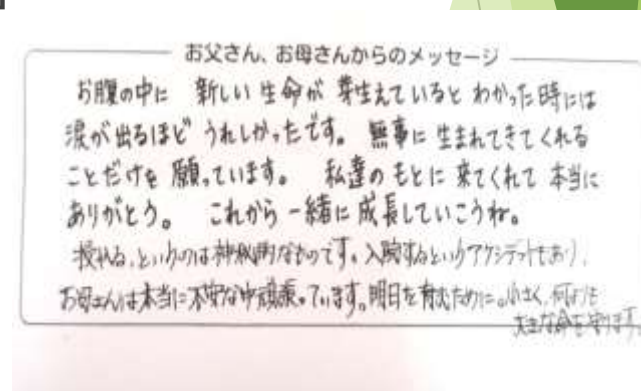 お父さん、お母さんからのメッセージ
お腹の中に 新しい生命が 芽生えていると わかった時には
涙が出るほど うれしかったです。 無事に 生まれてきてくれる
ことだけを 願っています。 私達の もとに 来てくれて 本当に
ありがとう。 これから 一緒に 成長していこうね。
授かる、というのは神秘的なものです。入院するというアクシデントもあり、
お母さんは本当に不安な中頑張っています。明日を育むために。小さく、何よりも
大きな命を守ります。